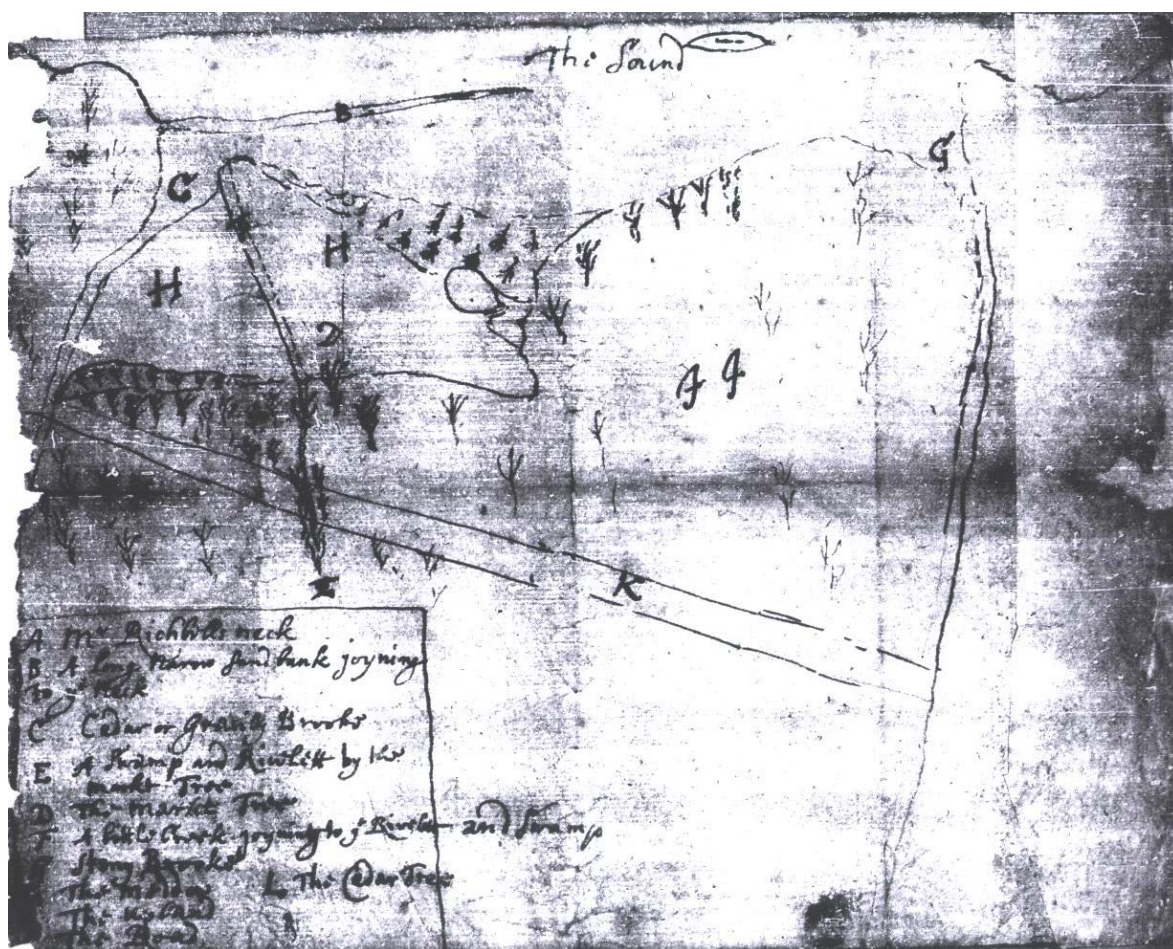 The Sound
B
C
G
H
H
D
A
K
E
A Mr Richbells neck
B A long Narow Sand bank joyning
to ye Neck
C Cedar or Gravily Brooke
E A Swamp and Rivulett by the
markt Tree
D The Markt Tree
F A little Creek joyning to ye Rivulett and Swamp
Stony Brooke
The Meddow L The Cedar Tree
The upland
The Road